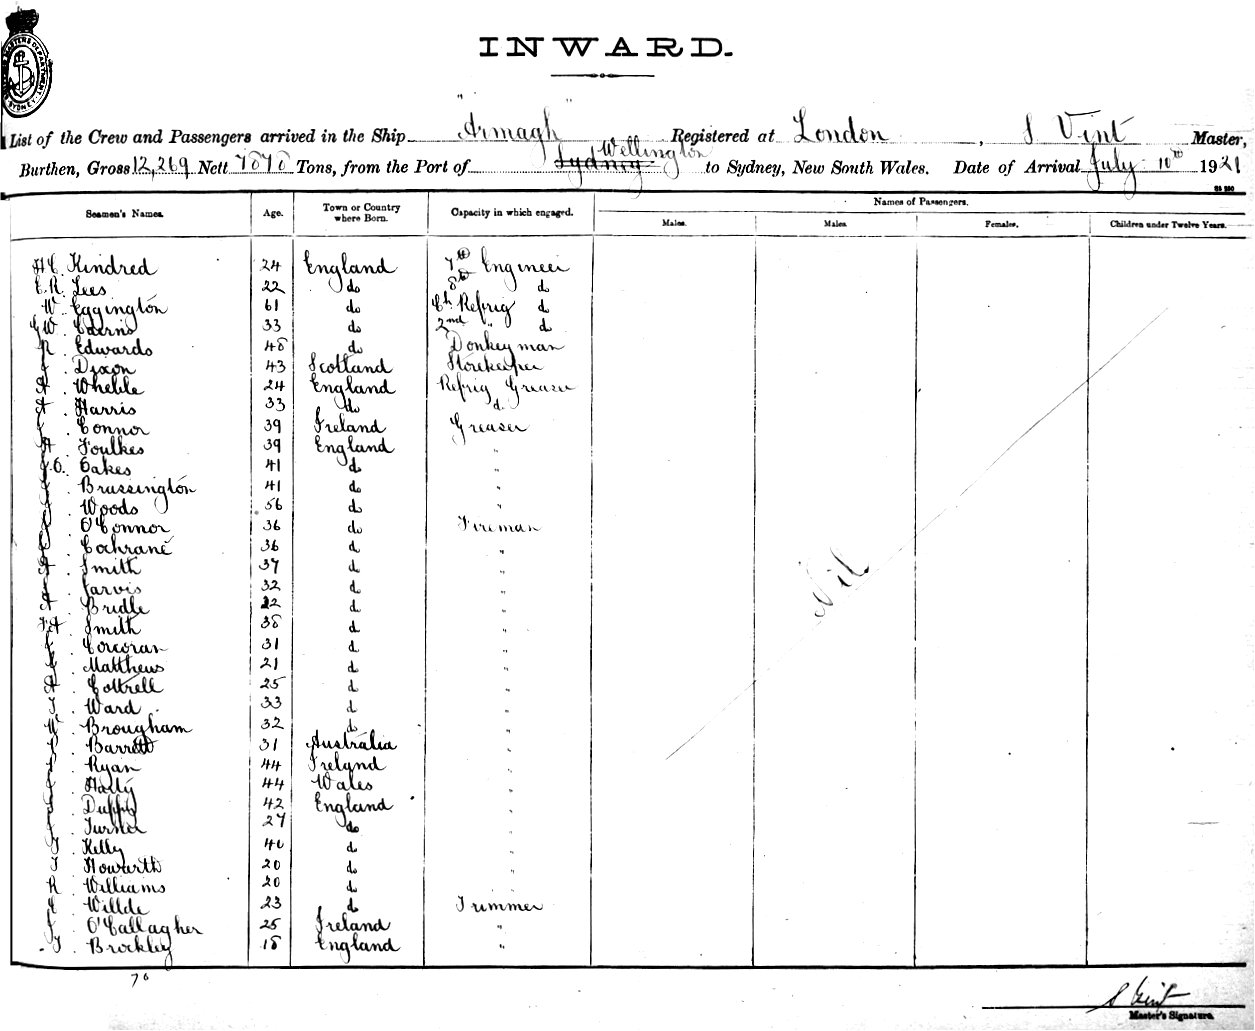 INWARD.
List of the Crew and Passengers arrived in the Ship "Armagh" Registered at London, S Vint Master,
Burthen, Gross 12,269 Nett 7878 Tons, from the Port of Sydney Wellington to Sydney, New South Wales. Date of Arrival July 10th 1921
Seamen's Names. Age. Town or Country where Born. Capacity in which engaged. Names of Passengers.
Males. Males. Females. Children under Twelve Years.
H C Kindred 24 England 7th Engineer
E. R. Lees 22 do 8th d
W. Eggington 61 do Ch Refrig d
G W. Cairns 33 do 2nd " d
R. Edwards 48 do Donkeyman
Dixon 43 Scotland Storekeeper
A. Wheble 24 England Refrig Greaser
A. Harris 33 do d.
J. Connor 39 Ireland Greaser
A. Foulkes 39 England "
Oakes 41 do "
J. Brassington 41 do "
J. Woods 56 do "
J. O'Connor 36 do Fireman
Cochrane 36 d "
A. Smith 37 d "
J. Jarvis 32 d "
A. Bridle 22 d "
A. Smith 38 d "
J. Corcoran 31 d "
Matthews 21 d "
A. Cottrell 25 d "
T. Ward 33 d "
W. Brougham 32 d "
Barrett 31 Australia "
J. Ryan 44 Ireland "
J. 44 Wales "
J. Duffy 42 England "
J. Turner 27 do "
T. Kelly 40 d "
T. Howarth 20 d "
R. Williams 20 d "
E. Willde 23 d Trimmer
J. O'Callagher 25 Ireland "
T. Brockley 18 England "
Nil
76
S Vint
Master's Signature.